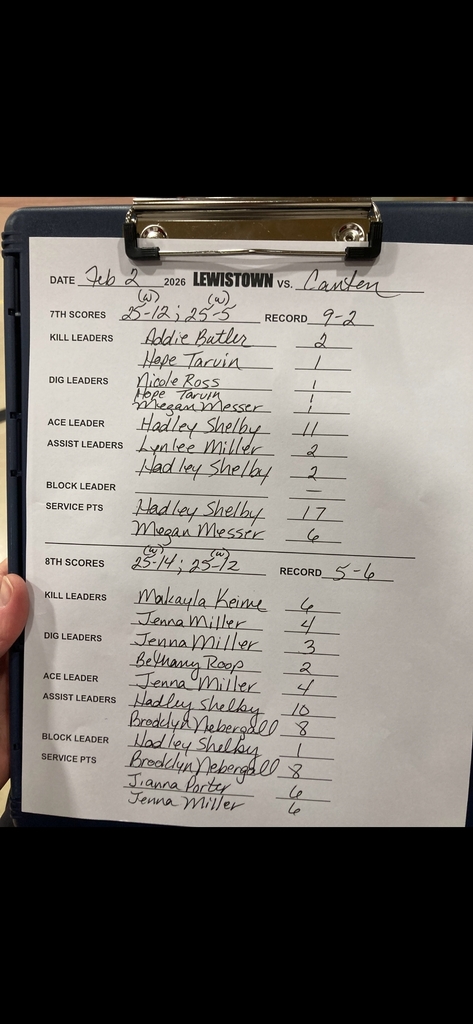 DATE Feb 2 2026 LEWISTOWN VS. Canton
(W) (W)
7TH SCORES 25-12; 25-5 RECORD 9-2
KILL LEADERS Addie Butler 2
Hope Tarvin 1
DIG LEADERS Nicole Ross 1
Hope Tarvin 1
Megan Messer 1
ACE LEADER Hadley Shelby 11
ASSIST LEADERS Lynlee Miller 2
Hadley Shelby 2
BLOCK LEADER —
SERVICE PTS Hadley Shelby 17
Megan Messer 6
(W) (W)
8TH SCORES 25-14; 25-12 RECORD 5-6
KILL LEADERS Makayla Keime 6
Jenna Miller 4
DIG LEADERS Jenna Miller 3
Bethany Roop 2
ACE LEADER Jenna Miller 4
ASSIST LEADERS Hadley Shelby 10
Brooklyn Nebergall 8
BLOCK LEADER Hadley Shelby 1
SERVICE PTS Brooklyn Nebergall 8
Jianna Porter 6
Jenna Miller 6